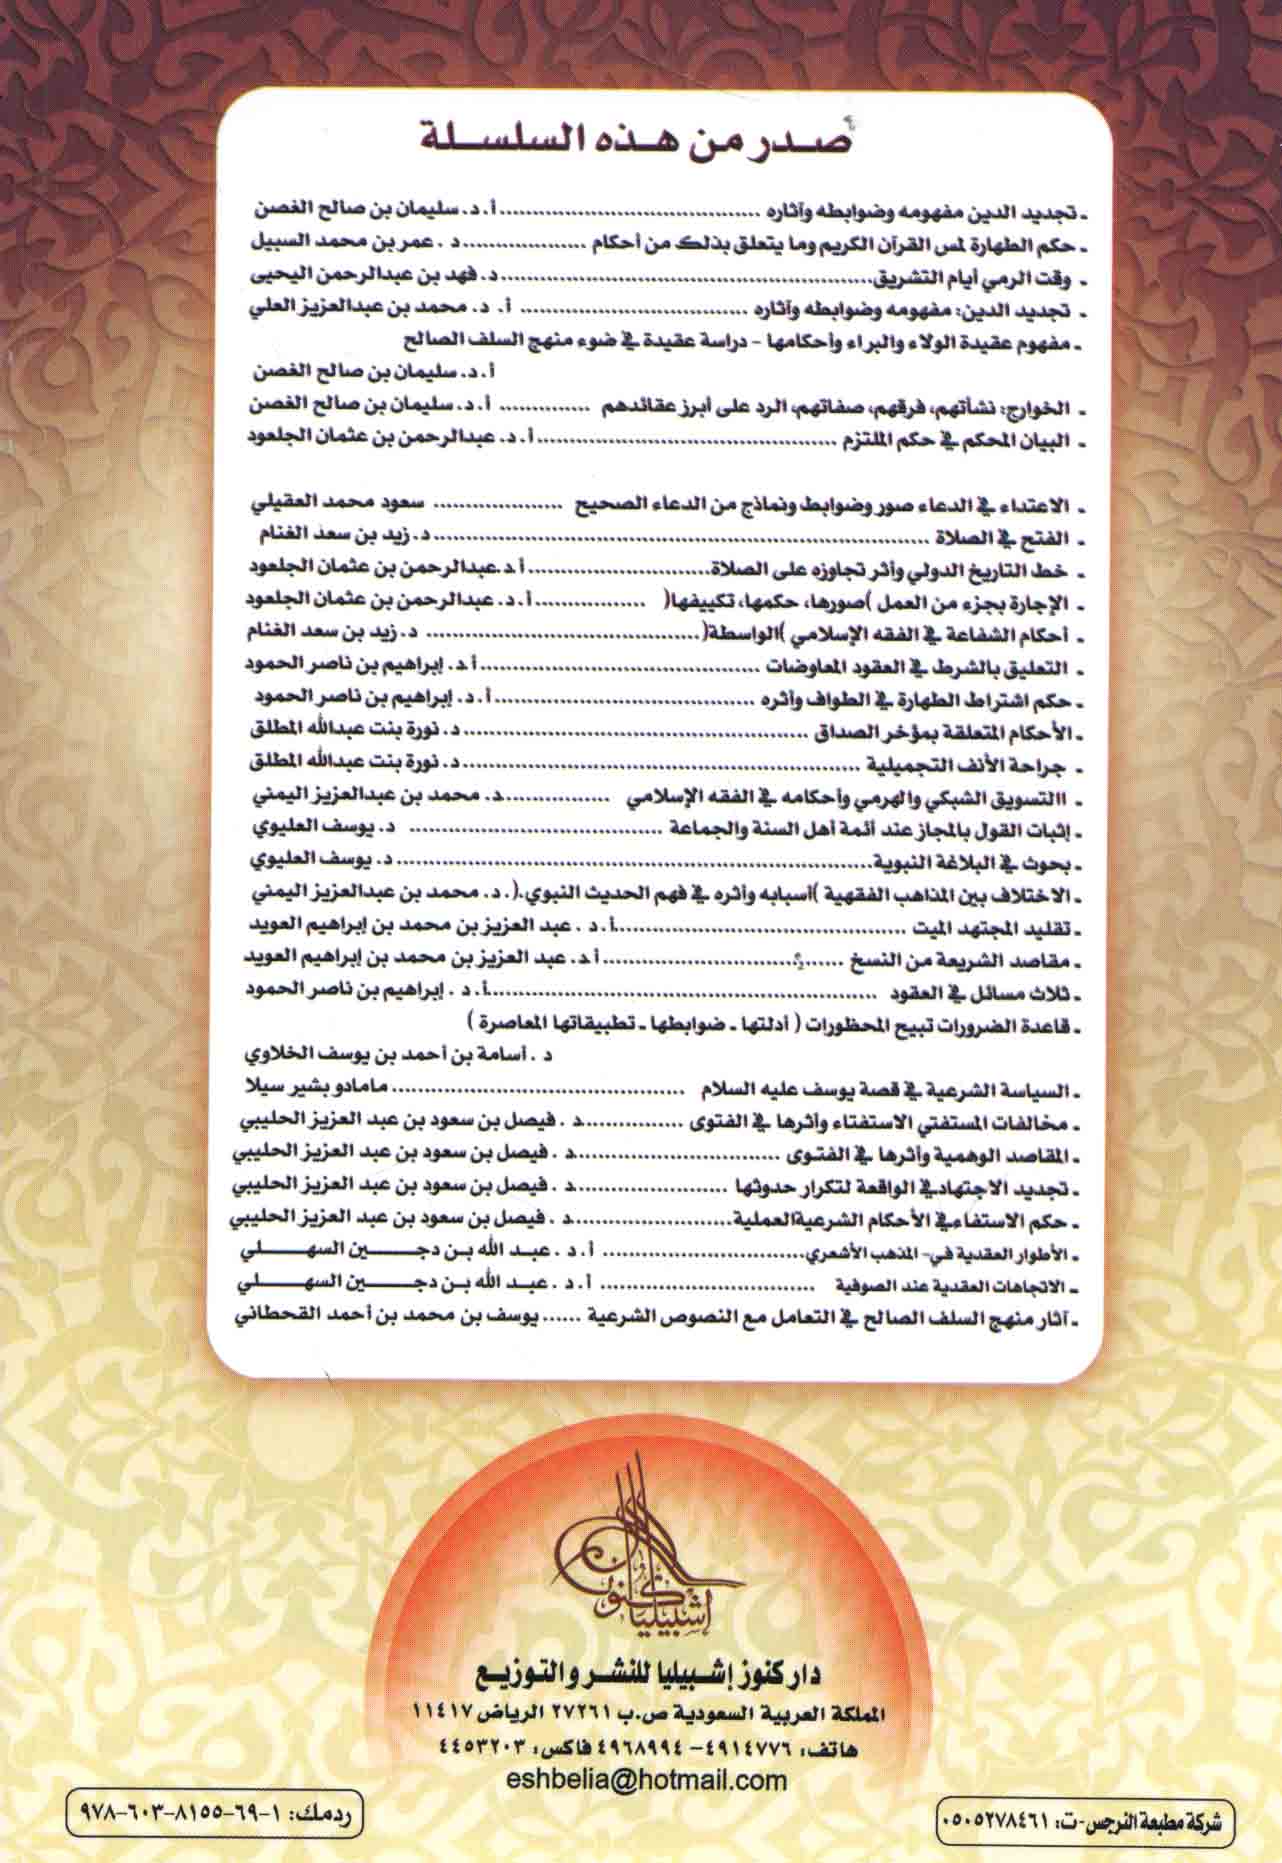 صدر من هذه السلسلة
- تجديد الدين مفهومه وضوابطه وآثاره ........................................ أ.د. سليمان بن صالح الغصن
- حكم الطهارة لمس القرآن الكريم وما يتعلق بذلك من أحكام ................... د. عمر بن محمد السبيل
- وقت الرمي أيام التشريق........................................................ د. فهد بن عبدالرحمن اليحيى
- تجديد الدين: مفهومه وضوابطه وآثاره ................................... أ. د. محمد بن عبدالعزيز العلي
- مفهوم عقيدة الولاء والبراء وأحكامها - دراسة عقيدة في ضوء منهج السلف الصالح
أ.د. سليمان بن صالح الغصن
- الخوارج: نشأتهم، فرقهم، صفاتهم، الرد على أبرز عقائدهم .............. أ.د. سليمان بن صالح الغصن
- البيان المحكم في حكم الملتزم ..............................................أ.د. عبدالرحمن بن عثمان الجلعود
- الاعتداء في الدعاء صور وضوابط ونماذج من الدعاء الصحيح .................... سعود محمد العقيلي
- الفتح في الصلاة ............................................................................د. زيد بن سعد الغنام
- خط التاريخ الدولي وأثر تجاوزه على الصلاة............................أ.د.عبدالرحمن بن عثمان الجلعود
- الإجارة بجزء من العمل )صورها، حكمها، تكييفها( .................أ.د. عبدالرحمن بن عثمان الجلعود
- أحكام الشفاعة في الفقه الإسلامي )الواسطة(.......................................... د. زيد بن سعد الغنام
- التعليق بالشرط في العقود المعاوضات ...........................................أ.د. إبراهيم بن ناصر الحمود
- حكم اشتراط الطهارة في الطواف وأثره ........................................أ.د. إبراهيم بن ناصر الحمود
- الأحكام المتعلقة بمؤخر الصداق ......................................................د. نورة بنت عبدالله المطلق
- جراحة الأنف التجميلية .............................................................د. نورة بنت عبدالله المطلق
- االتسويق الشبكي والهرمي وأحكامه في الفقه الإسلامي ...................د. محمد بن عبدالعزيز اليمني
- إثبات القول بالمجاز عند أئمة أهل السنة والجماعة ....................................... د. يوسف العليوي
- بحوث في البلاغة النبوية.........................................................................د. يوسف العليوي
- الاختلاف بين المذاهب الفقهية )أسبابه وأثره في فهم الحديث النبوي.(.د. محمد بن عبدالعزيز اليمني
- تقليد المجتهد الميت .............................................أ.د . عبد العزيز بن محمد بن إبراهيم العويد
- مقاصد الشريعة من النسخ .....................................أ.د. عبد العزيز بن محمد بن إبراهيم العويد
- ثلاث مسائل في العقود ............................................................أ.د . إبراهيم بن ناصر الحمود
- قاعدة الضرورات تبيح المحظورات ( أدلتها - ضوابطها - تطبيقاتها المعاصرة )
د . أسامة بن أحمد بن يوسف الخلاوي
- السياسة الشرعية في قصة يوسف عليه السلام ............................................. مامادو بشير سيلا
- مخالفات المستفتي الاستفتاء وأثرها في الفتوى ................د . فيصل بن سعود بن عبد العزيز الحليبي
- المقاصد الوهمية وأثرها في الفتوى ................................د . فيصل بن سعود بن عبد العزيز الحليبي
- تجديد الاجتهادفي الواقعة لتكرار حدوثها .........................د . فيصل بن سعود بن عبد العزيز الحليبي
- حكم الاستفاءفي الأحكام الشرعيةالعملية.........................د . فيصل بن سعود بن عبد العزيز الحليبي
- الأطوار العقدية في- المذهب الأشعري............................... أ.د . عبد الله بن دجين السهلي
- الاتجاهات العقدية عند الصوفية ................................. أ.د . عبد الله بن دجين السهلي
- آثار منهج السلف الصالح في التعامل مع النصوص الشرعية ...... يوسف بن محمد بن أحمد القحطاني
كنوز إشبيليا
دار كنوز إشبيليا للنشر والتوزيع
المملكة العربية السعودية ص.ب ٢٧٢٦١ الرياض ١١٤١٧
هاتف: ٤٩١٤٧٧٦ - ٤٩٦٨٩٩٤ فاكس: ٤٤٥٣٢٠٣
eshbelia@hotmail.com
شركة مطبعة النرجس-ت: ٠٥٠٥٢٧٨٤٦١
ردمك: ١-٦٩-٨١٥٥-٦٠٣-٩٧٨